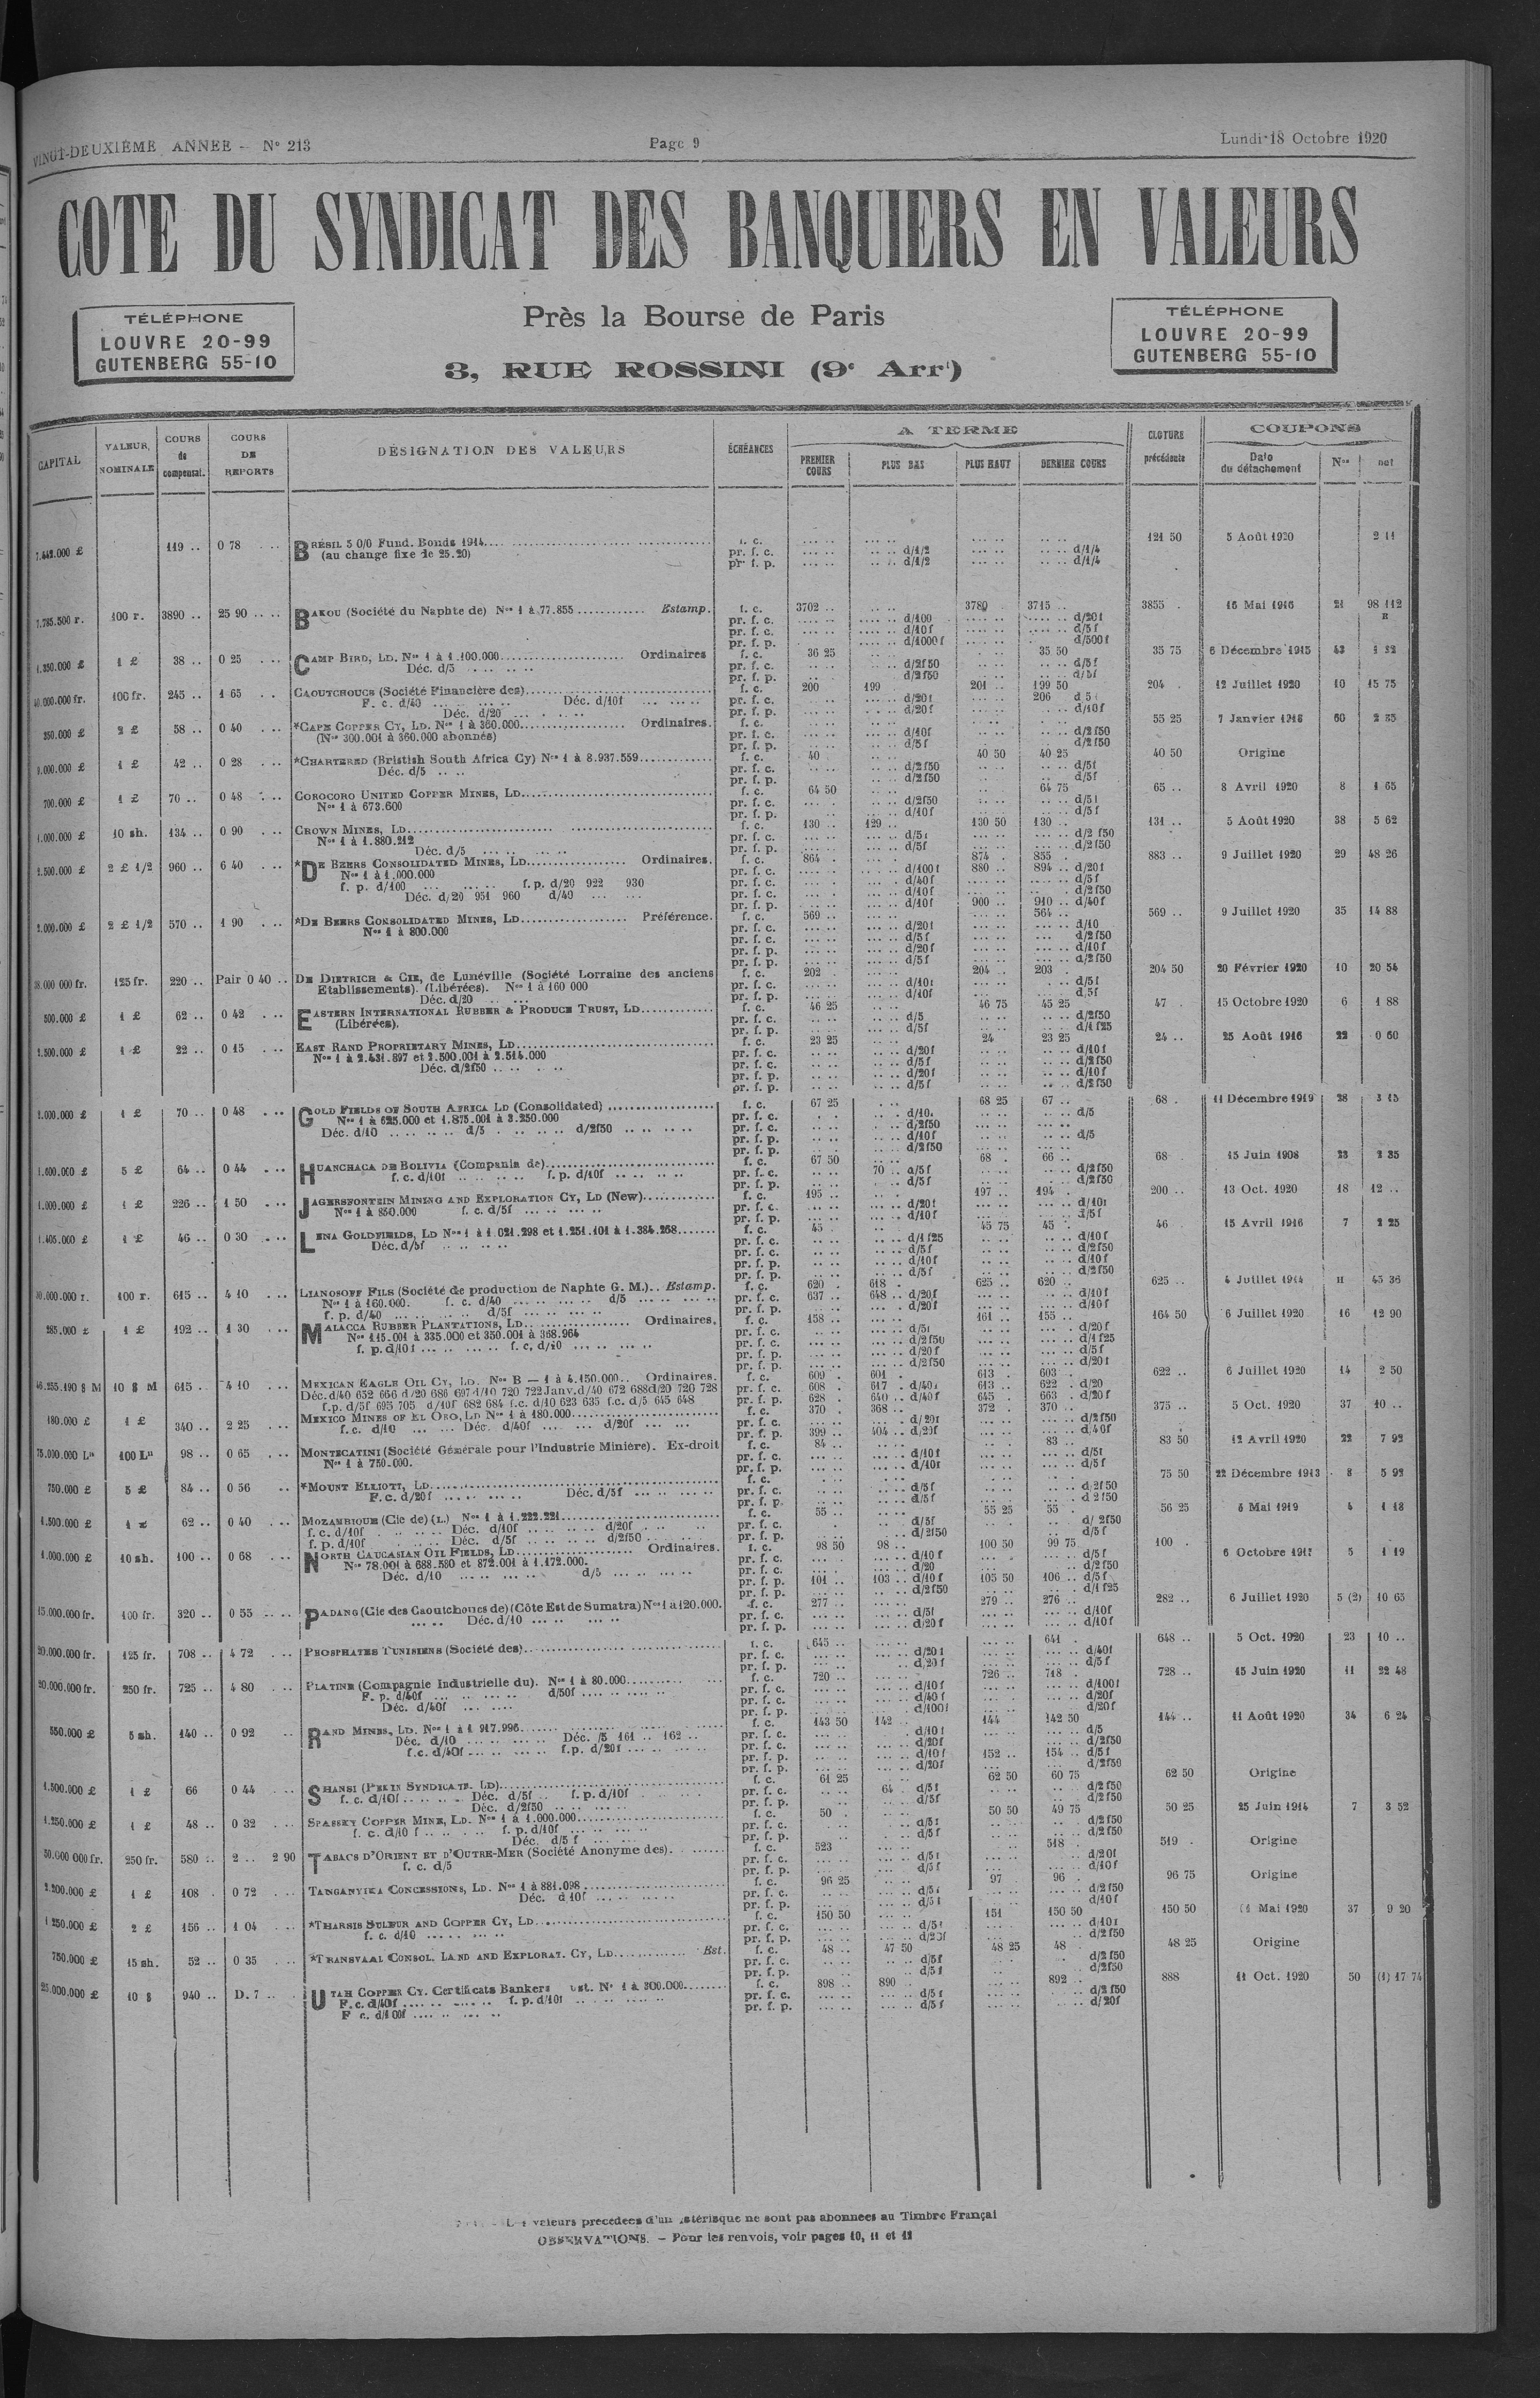 VINGT-DEUXIÈME ANNEE - N° 213 Page 9 Lundi 18 Octobre 1920
COTE DU SYNDICAT DES BANQUIERS EN VALEURS
Près la Bourse de Paris
3, RUE ROSSINI (9e Arrt)
TÉLÉPHONE
LOUVRE 20-99
GUTENBERG 55-10
TÉLÉPHONE
LOUVRE 20-99
GUTENBERG 55-10
CAPITAL VALEUR NOMINALE COURS de compensat. COURS DE REPORTS DÉSIGNATION DES VALEURS ÉCHÉANCES A TERME CLOTURE précédente COUPONS
PREMIER COURS PLUS BAS PLUS HAUT DERNIER COURS Date du détachement Nos net
119 .. 0 78 BRÉSIL 5 0/0 Fund. Bonds 1914 f. c. 121 50 5 Août 1920 2 11
(au change fixe de 25.20) pr. f. c. d/1/2 d/1/4
pr. f. p. d/1/2 d/1/4
7.785.500 r. 100 r. 3890 .. 25 90 BAKOU (Société du Naphte de) Nos 1 à 77.855 Estamp. f. c. 3702 .. 3780 3715 .. 3855 . 16 Mai 1916 21 98 112
pr. f. c. d/100 d/20f
pr. f. c. d/10f d/5f
pr. f. p. d/1000f d/500f
1.350.000 £ 1 £ 38 .. 0 25 CAMP BIRD, LD. Nos 1 à 1.100.000 Ordinaires f. c. 36 25 35 50 35 75 6 Décembre 1915 43 1 22
Déc. d/5 pr. f. c. d/2f50 d/5f
pr. f. p. d/2f50 d/5f
100 fr. 245 .. 1 65 CAOUTCHOUCS (Société Financière des) f. c. 200 199 201 .. 199 50 204 . 12 Juillet 1920 10 15 75
F. c. d/40 Déc. d/10f pr. f. c. d/20f 206
Déc. d/20 pr. f. p. d/20f d/10f
350.000 £ 2 £ 58 .. 0 40 *CAPE COPPER CY, LD. Nos 1 à 360.000 Ordinaires. f. c. 55 25 7 Janvier 60 2 35
(Nos 300.001 à 360.000 abonnés) pr. f. c. d/10f d/2f50
pr. f. p. d/5f d/2f50
9.000.000 £ 1 £ 42 .. 0 28 *CHARTERED (Bristish South Africa Cy) Nos 1 à 8.937.559 f. c. 40 40 50 40 25 40 50 Origine
Déc. d/5 pr. f. c. d/2f50 d/5f
pr. f. p. d/2f50 d/5f
700.000 £ 1 £ 70 .. 0 48 COROCORO UNITED COPPER MINES, LD f. c. 64 50 64 75 65 .. 8 Avril 1920 8 1 65
Nos 1 à 673.600 pr. f. c. d/2f50 d/5f
pr. f. p. d/10f d/5f
1.000.000 £ 10 sh. 134 .. 0 90 CROWN MINES, LD f. c. 130 .. 129 .. 130 50 130 .. 131 .. 5 Août 1920 38 5 62
Nos 1 à 1.880.212 pr. f. c. d/5f d/2 f50
Déc. d/5 pr. f. p. d/5f d/2f50
2 £ 1/2 960 .. 6 40 *DE BEERS CONSOLIDATED MINES, LD Ordinaires. f. c. 864 . 874 . 855 . 883 .. 9 Juillet 1920 29 48 26
Nos 1 à 1.000.000 pr. f. c. d/100f 880 .. 894 .. d/20f
f. p. d/100 f. p. d/20 922 930 pr. f. c. d/40f d/5f
Déc. d/20 951 960 d/40 pr. f. c. d/10f d/2f50
pr. f. p. d/10f 900 .. 910 .. d/40f
2.000.000 £ 2 £ 1/2 570 .. 1 90 *DE BEERS CONSOLIDATED MINES, LD Préférence. f. c. 569 .. 564 .. 569 .. 9 Juillet 1920 35 14 88
Nos 1 à 800.000 pr. f. c. d/20f d/10
pr. f. c. d/5f d/2f50
pr. f. p. d/20f d/10f
pr. f. p. d/5f d/2f50
125 fr. 220 .. Pair 0 40 DE DIETRICH & CIE, de Lunéville (Société Lorraine des anciens f. c. 202 . 204 .. 203 . 204 50 20 Février 1920 10 20 54
Etablissements). (Libérées). Nos 1 à 160 000 pr. f. c. d/10f d/5f
Déc. d/20 pr. f. p. d/10f d/5f
500.000 £ 1 £ 62 .. 0 42 EASTERN INTERNATIONAL RUBBER & PRODUCE TRUST, LD f. c. 46 25 46 75 45 25 47 . 15 Octobre 1920 6 1 88
(Libérées). pr. f. c. d/5 d/2f50
pr. f. p. d/5f d/1 f25
1 £ 22 .. 0 15 EAST RAND PROPRIETARY MINES, LD f. c. 23 25 24 23 25 24 .. 25 Août 1916 22 0 60
Nos 1 à 2.431.897 et 2.500.001 à 2.514.000 pr. f. c. d/20f d/10f
Déc. d/2f50 pr. f. c. d/5f d/2f50
pr. f. p. d/20f d/10f
pr. f. p. d/5f d/2f50
1 £ 70 .. 0 48 GOLD FIELDS OF SOUTH AFRICA LD (Consolidated) f. c. 67 25 68 25 67 .. 68 . 11 Décembre 1919 28 3 15
Nos 1 à 625.000 et 1.875.001 à 3.250.000 pr. f. c. d/10. d/5
Déc. d/10 d/5 d/2f50 pr. f. c. d/2f50
pr. f. p. d/10f d/5
pr. f. p. d/2f50
1.600.000 £ 5 £ 64 .. 0 44 HUANCHACA DE BOLIVIA (Compania de) f. c. 67 50 68 . 66 .. 68 . 15 Juin 1908 23 2 35
f. c. d/10f f. p. d/10f pr. f. c. 70 d/5f d/2f50
pr. f. p. d/5f d/2f50
1.000.000 £ 1 £ 226 .. 1 50 JAGERSFONTEIN MINING AND EXPLORATION CY, LD (New) f. c. 195 .. 197 .. 194 . 200 .. 13 Oct. 1920 18 12 ..
Nos 1 à 850.000 f. c. d/5f pr. f. c. d/20f d/10f
pr. f. p. d/10f d/5f
1.405.000 £ 1 £ 46 .. 0 30 LENA GOLDFIELDS, LD Nos 1 à 1.021.298 et 1.251.101 à 1.384.258 f. c. 45 45 75 45 46 . 15 Avril 1916 7 2 25
Déc. d/5f pr. f. c. d/1 f25 d/10f
pr. f. c. d/5f d/2f50
pr. f. p. d/10f d/10f
pr. f. p. d/5f d/2f50
100 r. 615 .. 4 10 LIANOSOFF FILS (Société de production de Naphte G. M.).. Estamp. f. c. 620 . 618 . 625 .. 620 .. 625 .. 4 Juillet 1914 11 45 36
Nos 1 à 160.000. f. c. d/40 d/5 pr. f. c. 637 .. 648 .. d/20f d/10f
f. p. d/40 d/5f pr. f. p. d/20f d/10f
285.000 £ 1 £ 192 .. 1 30 MALACCA RUBBER PLANTATIONS, LD Ordinaires. f. c. 158 .. 161 .. 155 .. 164 50 6 Juillet 1920 16 12 90
Nos 115.001 à 335.000 et 350.001 à 368.964 pr. f. c. d/5f d/20f
f. p. d/10f f. c. d/10 pr. f. c. d/2f50 d/1f25
pr. f. p. d/20f d/5f
pr. f. p. d/2f50 d/20f
10 $ M 615 .. 4 10 MEXICAN EAGLE OIL CY, LD. Nos B — 1 à 4.150.000.. Ordinaires. f. c. 609 . 601 . 613 . 603 . 622 .. 6 Juillet 1920 14 2 50
Déc. d/40 652 666 d/20 686 697 d/10 720 722 Janv. d/40 672 688 d/20 720 728 pr. f. c. 608 . 617 . d/40f 613 .. 622 . d/20
f.p. d/5f 695 705 d/10f 682 684 f.c. d/10 623 635 f.c. d/5 645 648 pr. f. p. 628 . 640 .. d/40f 645 . 663 . d/20f
180.000 £ 1 £ 340 .. 2 25 MEXICO MINES OF EL ORO, LD Nos 1 à 180.000 f. c. 370 . 368 .. 372 . 370 .. 375 .. 5 Oct. 1920 37 10 ..
f.c. d/10 Déc. d/40f d/20f pr. f. c. d/20f d/2f50
pr. f. p. 399 .. 404 .. d/20f d/40f
75.000.000 La 100 La 98 .. 0 65 MONTECATINI (Société Générale pour l'Industrie Minière). Ex-droit f. c. 84 .. 83 .. 83 50 12 Avril 1920 22 7 92
Nos 1 à 750.000. pr. f. c. d/10f d/5f
pr. f. p. d/10f d/5f
750.000 £ 5 £ 84 .. 0 56 *MOUNT ELLIOTT, LD f. c. 75 50 22 Décembre 1913 8 5 92
F. c. d/20f Déc. d/5f pr. f. c. d/5f d/2f50
pr. f. p. d/5f d 2f50
1.500.000 £ 62 .. 0 40 MOZAMBIQUE (Cie de) (L.) Nos 1 à 1.222.221 f. c. 55 .. 55 25 55 . 56 25 6 Mai 1919 4 1 18
f. c. d/10f Déc. d/10f d/20f pr. f. c. d/5f d/ 2f50
f. p. d/10f Déc. d/5f d/2f50 pr. f. p. d/2f50 d/5f
1.000.000 £ 10 sh. 100 .. 0 68 NORTH CAUCASIAN OIL FIELDS, LD Ordinaires. f. c. 98 50 98 .. 100 50 99 75 100 . 6 Octobre 5 1 19
Nos 78.001 à 688.580 et 872.001 à 1.172.000. pr. f. c. d/10f d/5f
Déc. d/10 d/5 pr. f. c. d/20 d/2f50
pr. f. p. 101 .. 103 .. d/10f 105 50 106 .. d/5f
pr. f. p. d/2f50 d/1f25
15.000.000 fr. 100 fr. 320 .. 0 55 PADANG (Cie des Caoutchoucs de) (Côte Est de Sumatra) Nos 1 à 120.000. f. c. 277 .. 279 .. 276 .. 282 .. 6 Juillet 1920 5 (2) 10 65
Déc. d/10 pr. f. c. d/5f d/10f
pr. f. p. d/20f d/10f
20.000.000 fr. 125 fr. 708 .. 4 72 PHOSPHATES TUNISIENS (Société des) f. c. 645 .. 641 . 648 .. 5 Oct. 1920 23 10 ..
pr. f. c. d/20f d/40f
pr. f. p. d/20f d/5f
20.000.000 fr. 250 fr. 725 .. 4 80 PLATINE (Compagnie Industrielle du). Nos 1 à 80.000 f. c. 720 .. 726 .. 718 . 728 .. 15 Juin 1920 11 22 48
F. p. d/40f d/50f pr. f. c. d/10f d/100f
Déc. d/40f pr. f. c. d/40f d/20f
pr. f. p. d/100f d/20f
550.000 £ 5 sh. 140 .. 0 92 RAND MINES, LD. Nos 1 à 1 917.996 f. c. 143 50 142 .. 144 142 50 144 .. 11 Août 1920 34 6 24
Déc. d/10 Déc. /5 161 .. 162 .. pr. f. c. d/10f d/5
f. c. d/40f f.p. d/20f pr. f. c. d/20f d/2f50
pr. f. p. d/10f 152 .. 154 .. d/5f
pr. f. p. d/20f d/2f50
1.500.000 £ 1 £ 66 0 44 SHANSI (PEKIN SYNDICATE. LD) f. c. 61 25 62 50 60 75 62 50 Origine
f. c. d/10f Déc. d/5f f. p. d/10f pr. f. c. 64 d/5f d/2f50
Déc. d/2f50 pr. f. p. d/5f d/2f50
1.250.000 £ 1 £ 48 .. 0 32 SPASSKY COPPER MINE, LD. Nos 1 à 1.000.000 f. c. 50 . 50 50 49 75 50 25 25 Juin 1914 7 3 52
f. c. d/10 f f. p. d/10f pr. f. c. d/5f d/2f50
Déc. d/5 f pr. f. p. d/5f d/2f50
250 fr. 580 .. 2 .. 2 90 TABACS D'ORIENT ET D'OUTRE-MER (Société Anonyme des) f. c. 523 518 . 519 . Origine
f. c. d/5 pr. f. c. d/5f d/20f
pr. f. p. d/5f d/10f
1 £ 108 . 0 72 TANGANYIKA CONCESSIONS, LD. Nos 1 à 881.098 f. c. 96 25 97 96 . 96 75 Origine
Déc. d 10f pr. f. c. d/5f d/2f50
pr. f. p. d/5f d/10f
1 250.000 £ 2 £ 156 .. 1 04 *THARSIS SULFUR AND COPPER CY, LD f. c. 150 50 151 150 50 150 50 Mai 1920 37 9 20
f. c. d/10 pr. f. c. d/5f d/10f
pr. f. p. d/20f d/2f50
750.000 £ 15 sh. 52 .. 0 35 *TRANSVAAL CONSOL. LAND AND EXPLORAT. CY, LD Est. f. c. 48 .. 47 50 48 25 48 . 48 25 Origine
pr. f. c. d/5f d/2f50
pr. f. p. d/5f d/2f50
25.000.000 £ 10 $ 940 .. D. 7 .. UTAH COPPER CY. Certificats Bankers N° 1 à 300.000 f. c. 898 .. 890 892 .. 888 11 Oct. 1920 50 (1) 17 74
F. c. d/40f f. p. d/10f pr. f. c. d/5f d/2f50
F c. d/100f pr. f. p. d/5f d/20f
valeurs precedées d'un astérisque ne sont pas abonnees au Timbre Françai
OBSERVATIONS. — Pour les renvois, voir pages 10, 11 et 12